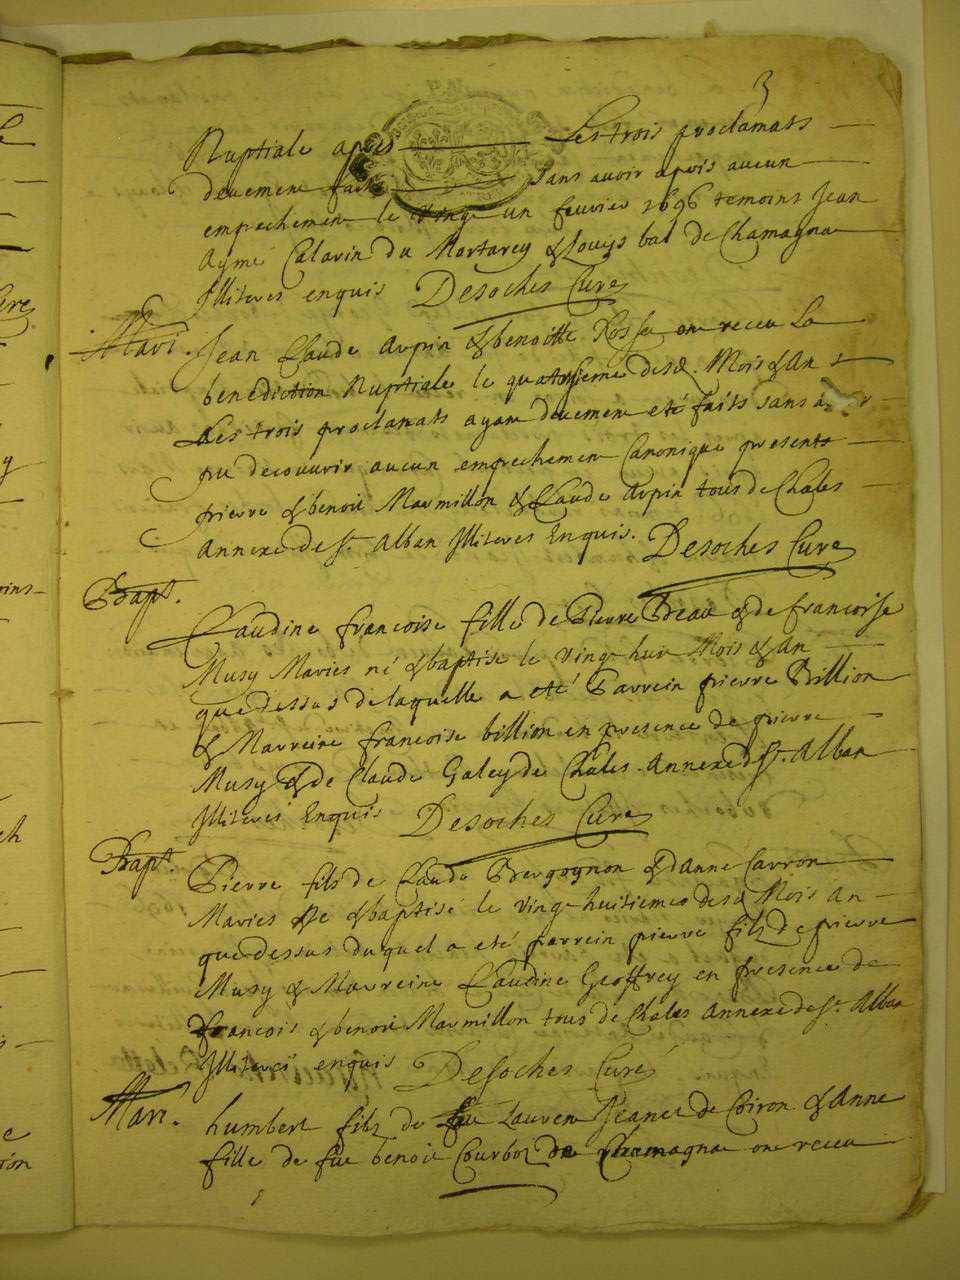 3
Nuptiale apres Les trois proclamats
deuement faits sans avoir apris aucun
empechement le vingt un feuvrier 1696 temoins Jean
Aymé Calavin du Mortarey & Louys bal de Chamagna
Illiteres enquis Desoches Curé
Mari. Jean Claude Arpin & benoitte Rosset ont receu La
benediction Nuptiale le quatorzieme desd. Mois & An
Les trois proclamats ayant deuement eté faits sans
pu decouvrir aucun empechement Canonique presents
pierre & benoit Marmillon & Claude Arpin tous de Chales
Annexe de St. Alban Illiteres Enquis. Desoches Curé
Bapt.
Claudine francoise fille de Pierre Beau & de francoise
Musy Maries né & baptisé le vingt huit Mois & An
que dessus de laquelle a eté Parrein pierre Billion
& Marreine francoise billion en presence de pierre
Musy & de Claude Galey de Chales Annexe d St. Alban
Illiteres Enquis Desoches Curé
Bapt. Pierre fils de Claude Bergognon & d'Anne Carron
Maries Né & baptisé le vingt huitieme desd Mois An
que dessus duquel a eté parrein pierre fils de pierre
Musy & Marreine Claudine Geoffrey en presence de
francois & benoit Marmillon tous de Chales Annexe de St. Alban
Illiteres enquis Desoches Curé
Mari. humbert fils de feu Laurent Jeanet de Coiron & Anne
fille de fue benoit Courbot de Chamagna ont receu